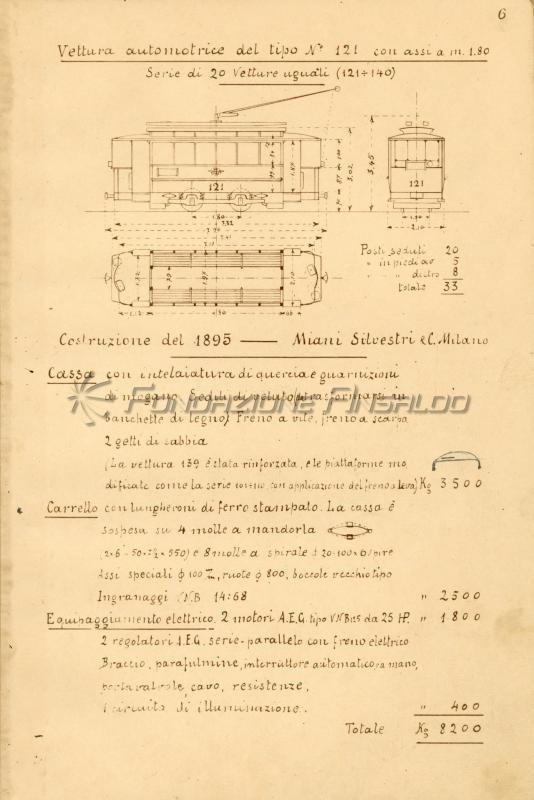 6
Vettura automotrice del tipo Nº 121 con assi a m. 1.80
Serie di 20 Vetture uguali (121÷140)
3.02
3.45
121
121
1.80
2.10
Posti seduti 20
" in piedi av 5
" " dietro 8
totale 33
1.12
1.80
Costruzione del 1895 — Miani Silvestri & C. Milano
Cassa con intelaiatura di quercia e guarnizioni
di mogano. Sedili di veluto (da trasformarsi in
FONDAZIONE ANSALDO
banchette di legno). Freno a vite, freno a scarpa
2 getti di sabbia
(La vettura 139 è stata rinforzata, e le piattaforme mo
dificate come la serie con applicazione del freno a leva) Kg 3500
Carrello con lungheroni di ferro stampato. La cassa è
sospesa su 4 molle a mandorla
e 8 molle a spirale
Assi speciali ϕ 100 m/m, ruote ϕ 800, boccole vecchio tipo
Ingranaggi N.B 14:68 " 2500
Equipaggiamento elettrico. 2 motori A.E.G. tipo da 25 HP. " 1800
2 regolatori A.E.G. serie-parallelo con freno elettrico
Braccio, parafulmine, interruttore automatico, a mano,
porta valvole, cavo, resistenze,
1 circuito di illuminazione. " 400
Totale Kg 8200